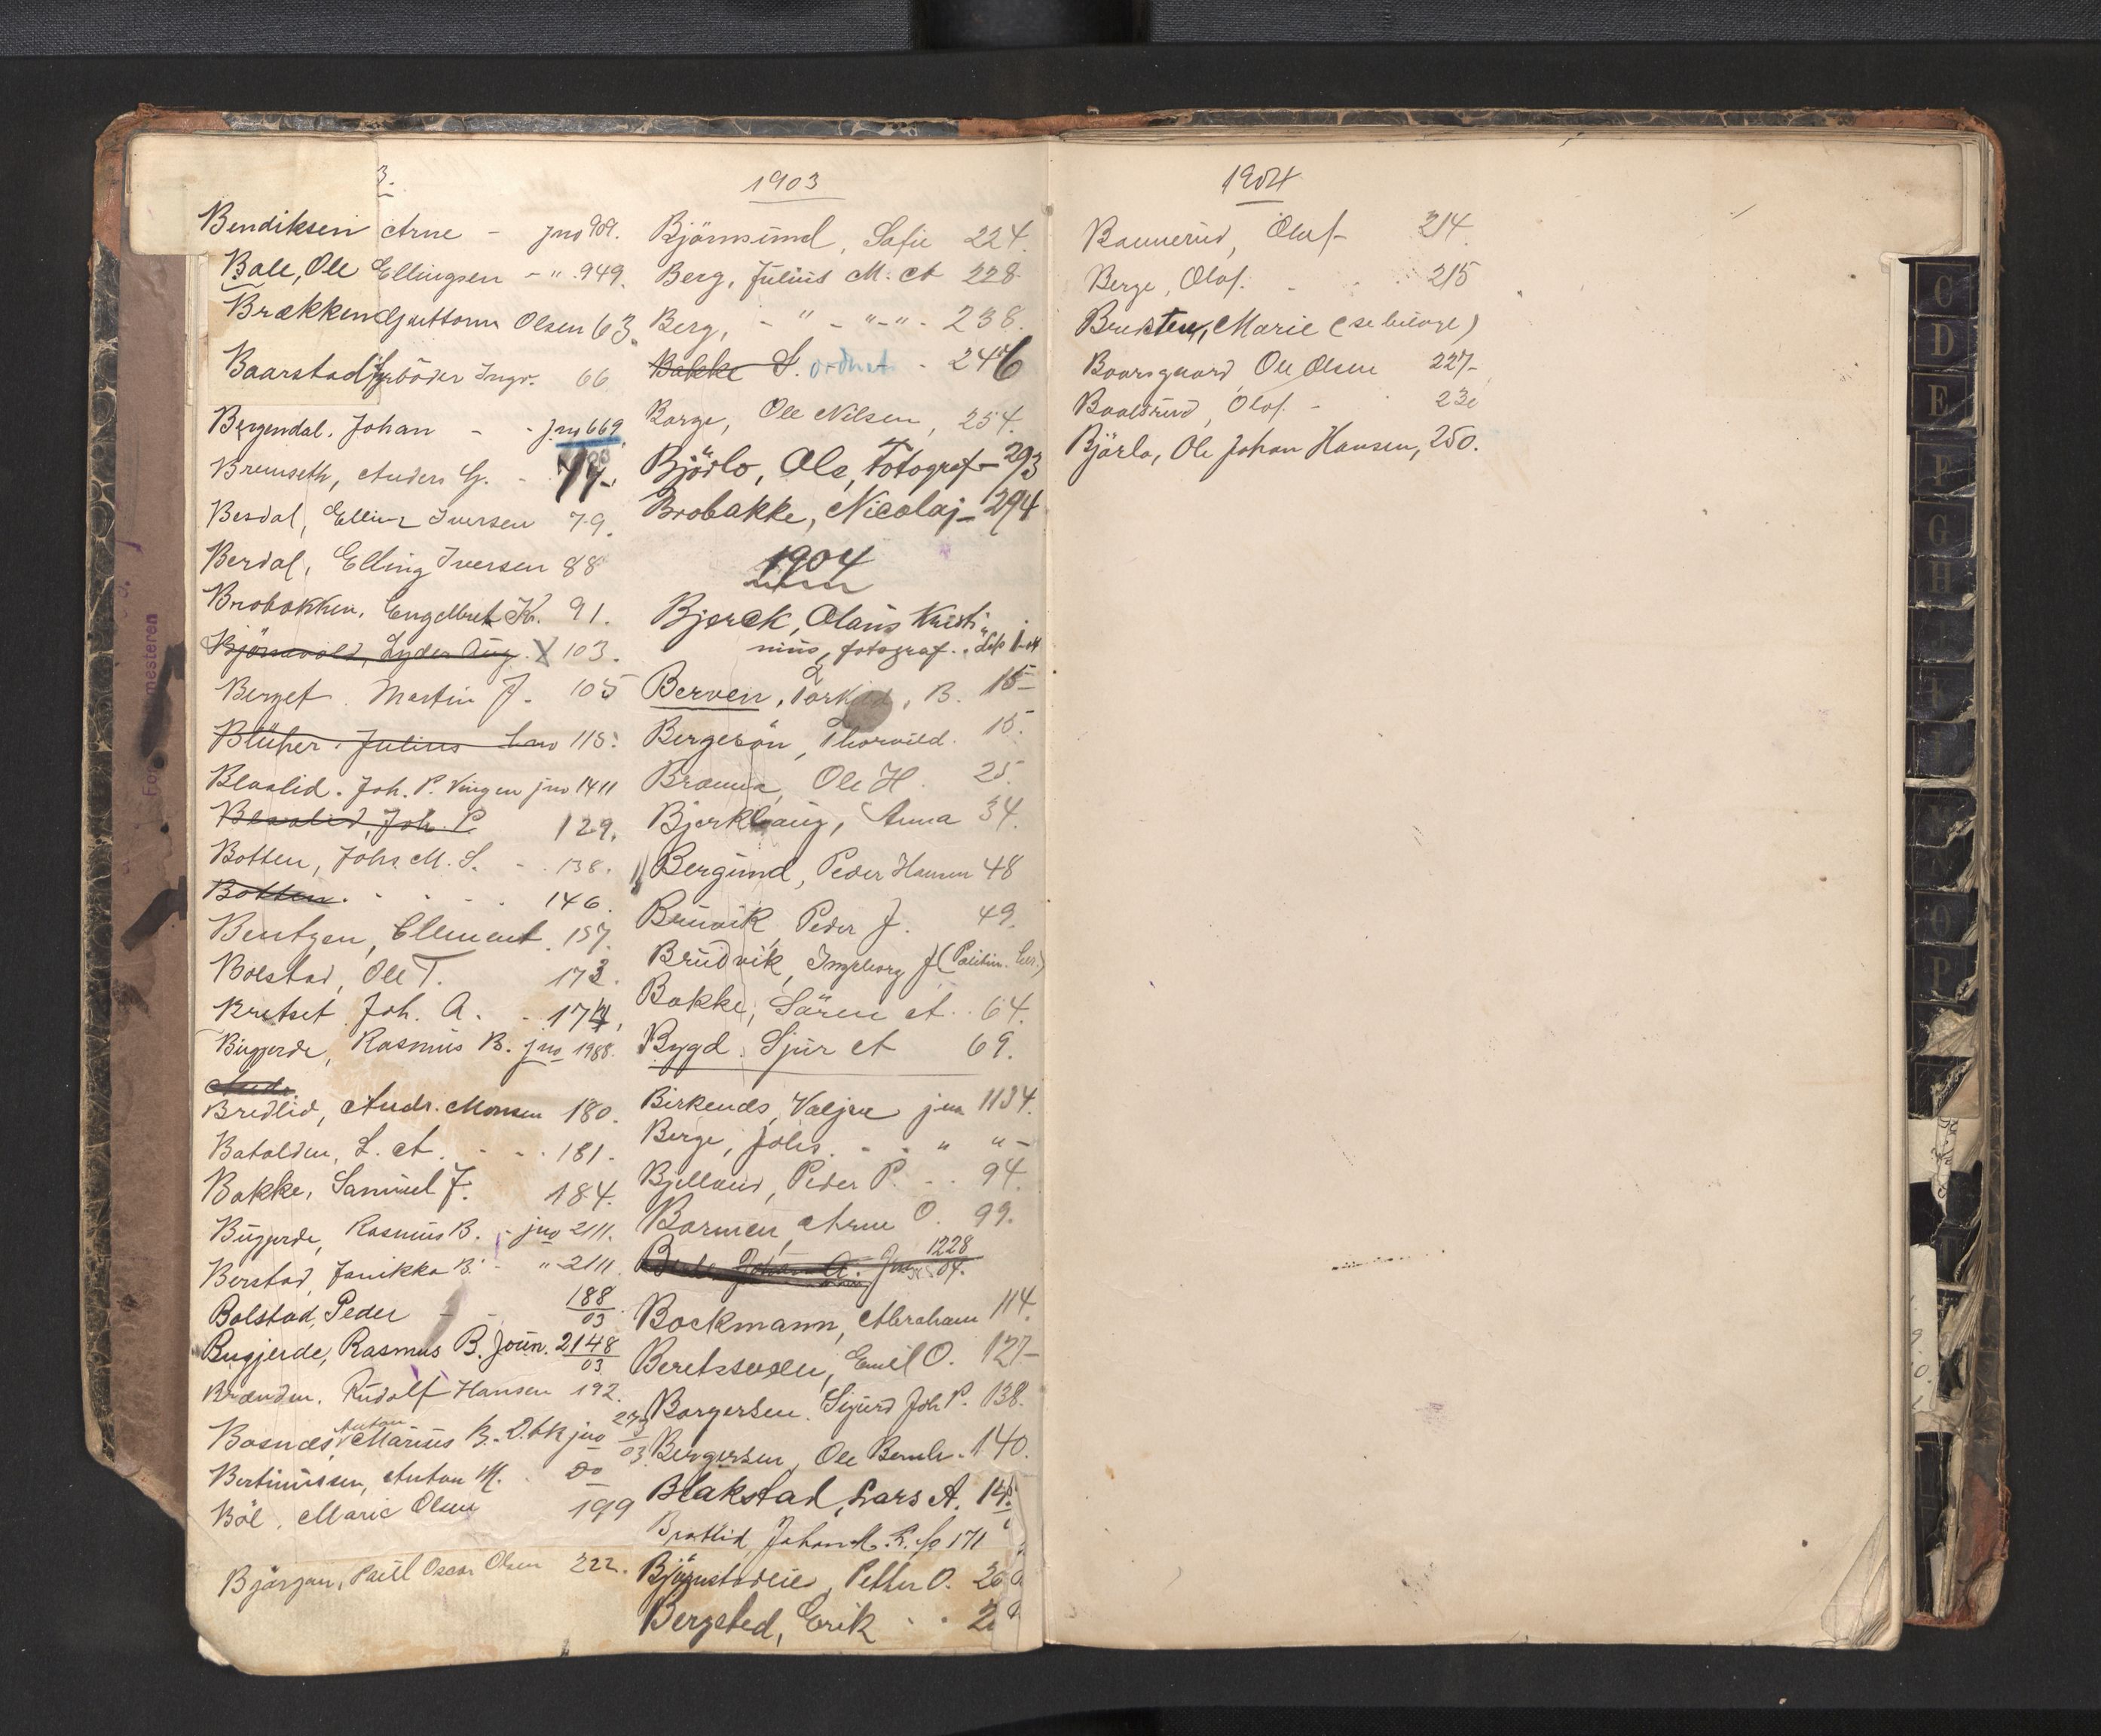 3.
Bendiksen Arne - jno 909.
Bale, Ole Ellingsen - " 949.
Brækken Guttorm Olsen 63.
Baarstad, Ingv. 66
Bergendal. Johan - - jno 669
Bremseth, Anders G. - 77-
Besdal, Elling Iversen 79.
Berdal, Elling Iversen 88
Brobakken, Engelbret Kr. 91.
Björnevold, Lyder Aug. X 103.
Berget. Martin J. 105
Blüher. Julius Lno 115.
Blaalid. Joh. P. Vingen jno 1411
Blaalid, Joh. P. 129.
Botten, Johs. M. S. - 138.
Botten. - - - 146.
Bentzen, Clement. 157.
Bolstad, Ole T. 173.
Bretset Joh. A. - 174,
Bugjerde, Rasmus B. jno 1988.
Andr.
Bredlid, Andr. Monsen 180.
Batalden, L. A. - - 181.
Bakke, Samuel J. 184.
Bugjerde, Rasmus B. - jno 2111.
Berstad, Janikka B. - " 2111.
Bolstad, Peder - - 188/03
Bugjerde, Rasmus B. Joun. 2148/03
Brænden. Rudolf Hansen 192.
Anton
Basnæs, Marius B. jno 03
Bertinussen, Anton M. - Do
Böe, Marie Olsen 199
Björgan, Paul Oscar Olsen 222.
1903
Björnsund, Sofie 224.
Berg, Julius M. A 228
Berg, - " - "-" - 238.
Bakke S. ordnet - 246
Barge, Ole Nilsen, 254.
Björlo, Ole, Fotograf - 293
Brobakke, Nicolaj - 294
1904
Bjerck, Olaus Kristi-
nius, fotograf.
Berven, Torkild, B. 15-
Bergesön, Thorvild. 15.
Bramna, Ole H. 25.
Bjerkhaug, Anna 34.
Bergund, Peder Hansen 48
Bruvik Peder J. 49.
Brudvik, Ingeborg J
Bakke, Sören A. 64.
Bygd. Sjur A 69.
Birkenæs, Valjer jno 1134.
Berge, Johs. - - " " -
Bjelland, Peder P. - - 94.
Barmen, Arne O. 99.
Johan A. Jno 1228/04.
Bockmann, Abraham 114.
Beretssveen, Emil O. 127-
Borgersen. Sigurd Joh P. 138.
Bergersen, Ole Bernh. 140.
Blakstad, Lars A.
Bratlid, Johan 171
Petter O.
Bergsted, Erik - -
1904
Bannerud, Oluf - 214.
Berge, Olaf. - 215
Brusten, Marie (se bilage)
Baarsgaard Ole Olsen 227-
Baalsrud, Olaf. -
Bjärlo, Ole Johan Hansen, 250.
C
D
E
F
G
H
O
P
mesteren